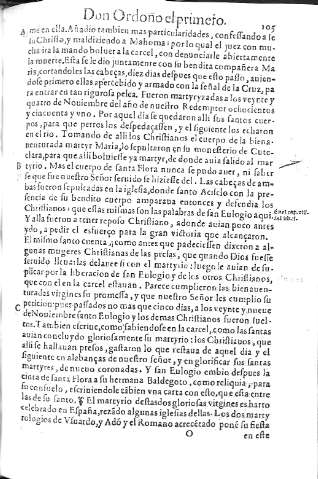 Don Ordoño el primero. 105
A me en ella. Añadio tambien mas particularidades, confessando a Ie
su Christo, y maldiziendo a Mahoma: por lo qual el juez con mu-
cha ira la mando boluer a la carcel, con denunciarle abiertamente
la muerte. Esta se le dio juntamente con su bendita compañera Ma
ria, cortandoles las cabeças, diez dias despues que esto passo, auien-
dose primero ellas apercebido y armado con la señal de la Cruz, pa
ra entrar en tan rigurosa pelea. Fueron martyrizadas a los veynte y
quatro de Nouiembre del año de nuestro Redemptor ochocientos
y cincuenta y vno. Por aquel dia se quedaron alli sus santos cuer-
pos, para que perros los despedaçassen, y el siguiente los echaron
en el rio. Tomando de alli los Christianos el cuerpo de la biena-
uenturada martyr Maria, lo sepultaron en su monesterio de Cute-
clara, para que alli boluiesse ya martyr, de donde auia salido al mar
B tyrio. Mas el cuerpo de santa Flora nunca se pudo auer, ni saber
se que fue nuestro Señor seruido se hiziesse del. Las cabeças de am-
bas fueron sepultadas en la iglesia, donde santo Acisclo con la pre-
sencia de su bendito cuerpo amparaua entonces y defendia los
Christianos: que estas mismas son las palabras de san Eulogio aqui.
Y alla fueron a tener reposo Christiano, adonde auian poco antes
ydo, a pedir el esfuerço para la gran victoria que alcançaron.
El mismo santo cuenta, como antes que padeciessen dixeron a al-
gunas mugeres Christianas de las presas, que quando Dios fuesse
seruido lleuarlas delante si con el martyrio: luego le auian de su-
plicar por la liberacion de san Eulogio y de los otros Christianos,
que con el en la carcel estauan. Parece cumplieron las bienauen-
turadas virgines su promessa, y que nuestro Señor les cumplio su
C peticion: pues passados no mas que cinco dias, a los veynte y nueue
de Nouiembre santo Eulogio y los demas Christianos fueron suel-
tos. Tambien escriue, como sabiendose en la carcel, como las santas
auian concluydo gloriosamente su martyrio: los Christianos, que
alli se hallauan presos, gastaron lo que restaua de aquel dia y el
siguiente en alabanças de nuestro señor, y en glorificar sus santas
martyres, de nueuo coronadas. Y san Eulogio embio despues la
cinta de santa Flora a su hermana Baldegoto, como reliquia, para
su consuelo, escriuiendole tãbien vna carta con esto, que esta entre
las de su santo. El martyrio destas dos gloriosas virgines es harto
celebrado en España, rezãdo algunas iglesias dellas. Los dos marty
rologios de Vsuardo, y Adó y el Romano acrecẽtado ponẽ su fiesta
O en este